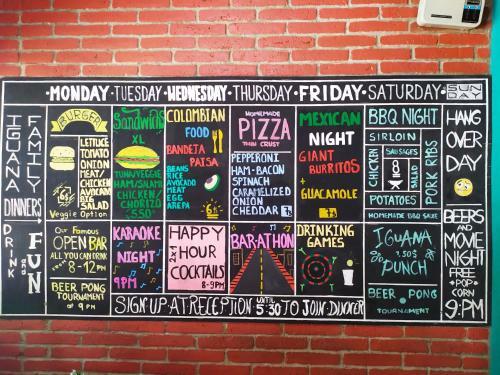 ·MONDAY·TUESDAY·WEDNESDAY·THURSDAY·FRIDAY·SATURDAY·SUNDAY
IGUANA DINNERS
FAMILY
BURGER
LETTUCE
TOMATO
ONION
MEAT/
CHICKEN
AVOCADO
BIG
SALAD
Veggie Option
Sandwing
XL
TUNA/VEGGIE
HAM/SALAMI
CHICKEN/
CHORIZO
COLOMBIAN
FOOD
BANDEJA
PAISA
BEANS
RICE
AVOCADO
MEAT
EGG
AREPA
HOMEMADE
PIZZA
THIN CRUST
PEPPERONI
HAM-BACON
SPINACH
CARAMELIZED
ONION
CHEDDAR
MEXICAN
NIGHT
GIANT
BURRITOS
+
GUACAMOLE
BBQ NIGHT
SIRLOIN
CHICKEN
SAUSAGES
SALAD
PORK RIBS
POTATOES
HOMEMADE BBQ SAUCE
HANG
OVER
DAY
DRINK and FUN
OUR FAMOUS
OPEN BAR
ALL YOU CAN DRINK
8-12PM
BEER PONG
TOURNAMENT
at 9 PM
KARAOKE
NIGHT
9PM
HAPPY
HOUR
2x1
COCKTAILS
8-9PM
BAR-ATHON
DRINKING
GAMES
IGUANA
PUNCH
BEER PONG
TOURNAMENT
BEERS
AND
MOVIE
NIGHT
FREE
·POP·
CORN
9·PM
SIGN·UP·AT·RECEPTION UNTIL 5:30 TO JOIN DINNER